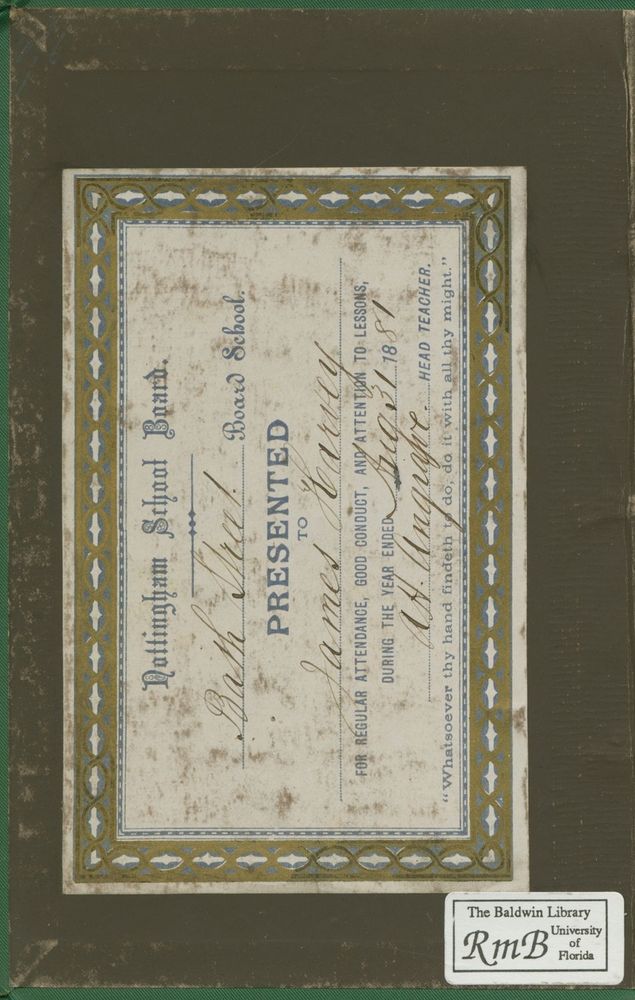 Nottingham School Board.
Bath Street Board School.
PRESENTED
TO
James Harvey
FOR REGULAR ATTENDANCE, GOOD CONDUCT, AND ATTENTION TO LESSONS,
DURING THE YEAR ENDED 31 1881
HEAD TEACHER.
"Whatsoever thy hand findeth to do, do it with all thy might."
The Baldwin Library
RmB University
of
Florida